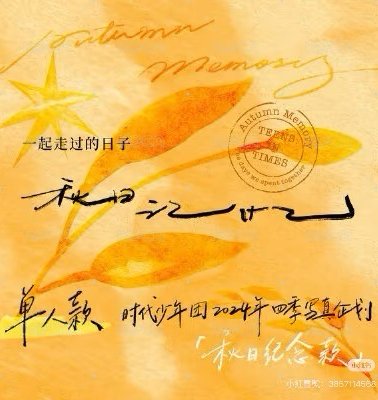 Autumn
Memory
一起走过的日子
Autumn Memory
TEENS
IN
TIMES
The days we spent together
秋日记忆
单人款 时代少年团2024年四季写真企划
「秋日纪念款」
小红书